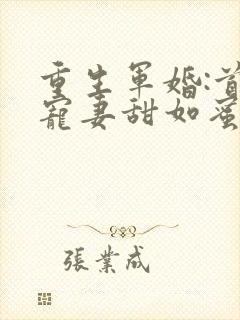 重生軍婚:首
寵妻甜如蜜
張業成